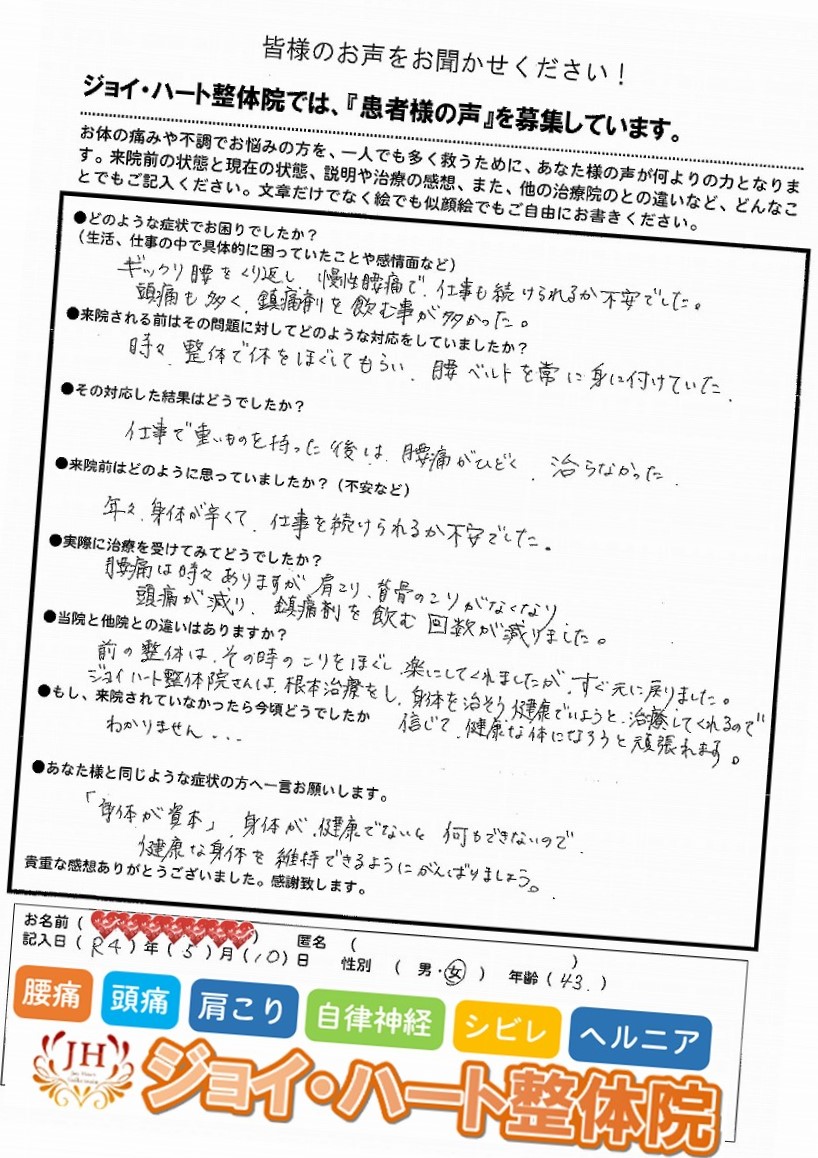 皆様のお声をお聞かせください！
ジョイ・ハート整体院では、『患者様の声』を募集しています。
お体の痛みや不調でお悩みの方を、一人でも多く救うために、あなた様の声が何よりの力となりま
す。来院前の状態と現在の状態、説明や治療の感想、また、他の治療院のとの違いなど、どんなこ
とでもご記入ください。文章だけでなく絵でも似顔絵でもご自由にお書きください。
●どのような症状でお困りでしたか？
（生活、仕事の中で具体的に困っていたことや感情面など）
ギックリ腰をくり返し、慢性腰痛で、仕事も続けられるか不安でした。
頭痛も多く、鎮痛剤を飲む事が多かった。
●来院される前はその問題に対してどのような対応をしていましたか？
時々、整体で体をほぐしてもらい、腰ベルトを常に身に付けていた。
●その対応した結果はどうでしたか？
仕事で重いものを持った後は、腰痛がひどく、治らなかった。
●来院前はどのように思っていましたか？（不安など）
年々、身体が辛くて、仕事を続けられるか不安でした。
●実際に治療を受けてみてどうでしたか？
腰痛は時々ありますが、肩こり、背骨のこりがなくなり
頭痛が減り、鎮痛剤を飲む回数が減りました。
●当院と他院との違いはありますか？
前の整体は、その時のこりをほぐし、楽にしてくれましたが、すぐ元に戻りました。
ジョイハート整体院さんは、根本治療をし、身体を治そう、健康でいようと、治療してくれるので
信じて、健康な体になろうと頑張れます。
●もし、来院されていなかったら今頃どうでしたか
わかりません...
●あなた様と同じような症状の方へ一言お願いします。
「身体が資本」、身体が、健康でないと何もできないので、
健康な身体を維持できるようにがんばりましょう。
貴重な感想ありがとうございました。感謝致します。
お名前（　） 匿名（　）
記入日（R4）年（5）月（10）日 性別（男・女） 年齢（43.）
腰痛 頭痛 肩こり 自律神経 シビレ ヘルニア
JH
ジョイ・ハート整体院